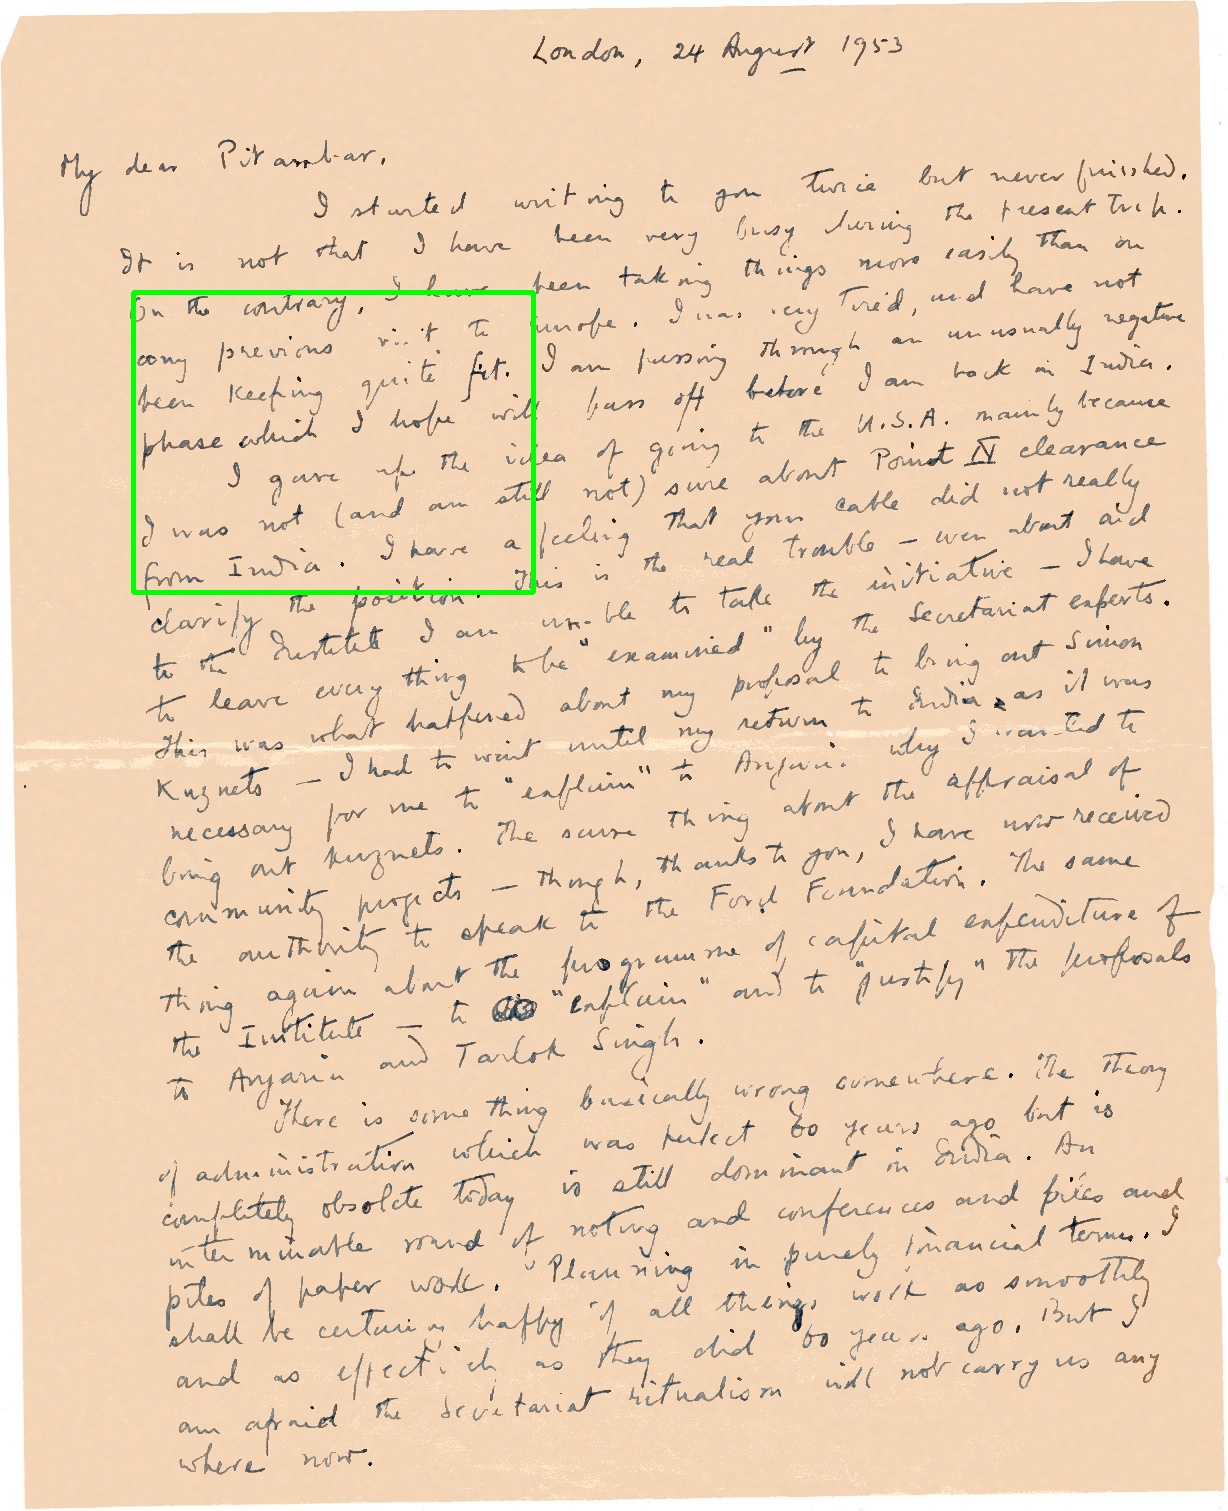 London, 24 August 1953
My dear Pitambar,
I started writing to you twice but never finished.
It is not that I have been very busy during the present trip.
On the contrary, I have been taking things more easily than on
any previous visit to Europe. I was very tired, and have not
been keeping quite fit. I am passing through an unusually negative
phase which I hope will pass off before I am back in India.
I gave up the idea of going to the U.S.A. mainly because
I was not (and am still not) sure about Point IV clearance
from India. I have a feeling that your cable did not really
clarify the position. This is the real trouble – even about aid
to the Institute I am unable to take the initiative – I have
to leave every thing to be "examined" by the Secretariat experts.
This was what happened about my proposal to bring out Simon
Kuznets – I had to wait until my return to India, as it was
necessary for me to "explain" to Anjaria why I wanted to
bring out Kuznets. The same thing about the appraisal of
community projects – though, thanks to you, I have now received
the authority to speak to the Ford Foundation. The same
thing again about the programme of capital expenditure of
the Institute – to "explain" and to "justify" the proposals
to Anjaria and Tarlok Singh.
There is some thing basically wrong somewhere. The theory
of administration which was perfect 60 years ago but is
completely obsolete today is still dominant in India. An
interminable round of noting and conferences and files and
piles of paper work. Planning in purely financial terms. I
shall be certainly happy if all things work as smoothly
and as effectively as they did 60 years ago. But I
am afraid the Secretariat ritualism will not carry us any
where now.